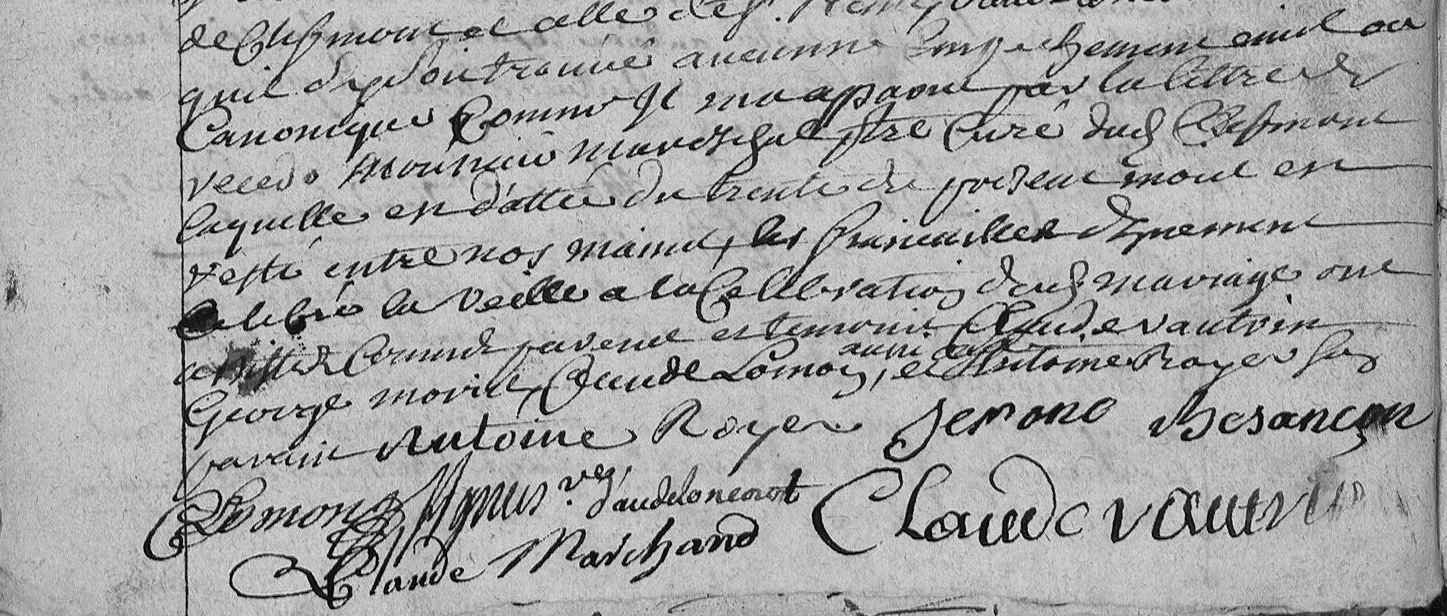 de Clefmont et celle de
quil sy soit trouvé aucunne Empechement civil ou
Canonique Comme Il ma apparu par la lettre de
recedo Monsieur mareschal ptre Curé dud Clefmont
laquelle est dattée du trente du present mois et
resté entre nos mains, les fiancailles dignement
Celebré la veille a la Celebration dud mariage ont
assisté Comme parens et temoins Claude vautrin
George Claude Lomon, aussi et Antoine Royer
Antoine Royer Jerome Besançon
Lomon d'audeloncourt
Claude vautrin
Claude Marchand